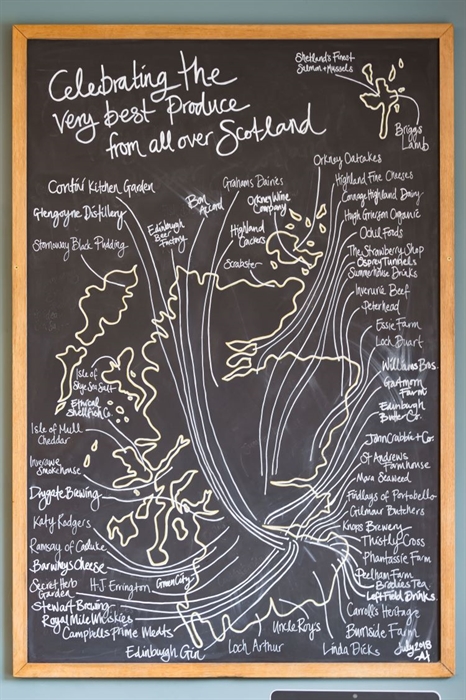 Celebrating the
very best Produce
from all over Scotland
Shetland's Finest
Salmon + Mussels
Briggs
Lamb
Contini Kitchen Garden
Glengoyne Distillery
Stornoway Black Pudding
Edinburgh
Beer
Factory
Bon
Accord
Grahams Dairies
Highland
Crackers
Scrabster
Orkney Wine
Company
Orkney Oatcakes
Highland Fine Cheeses
Connage Highland Dairy
Hugh Grierson Organic
Ochil Foods
The Strawberry Shop
Osprey Tunnels
Summerhouse Drinks
Inverurie Beef
Peterhead
Essie Farm
Loch Duart
Williams Bros.
Gartmorn
Farm
Edinburgh
Butter Co.
John Crabbie + Co.
St Andrews
Farmhouse
Mara Seaweed
Findlays of Portobello
Gilmour Butchers
Knops Brewery
Thistly Cross
Phantassie Farm
Peelham Farm
Brodies Tea
Left Field Drinks
Carroll's Heritage
Burnside Farm
Linda Dicks
July 2018
Isle of
Skye Sea Salt
Ethical
Shellfish Co.
Isle of Mull
Cheddar
Inverawe
Smokehouse
Drygate Brewing
Katy Rodgers
Ramsay of Carluke
Barwheys Cheese
Secret Herb
Garden
H.J. Errington
Green City
Stewart Brewing
Royal Mile Whiskies
Campbells Prime Meats
Edinburgh Gin
Loch Arthur
Uncle Roy's